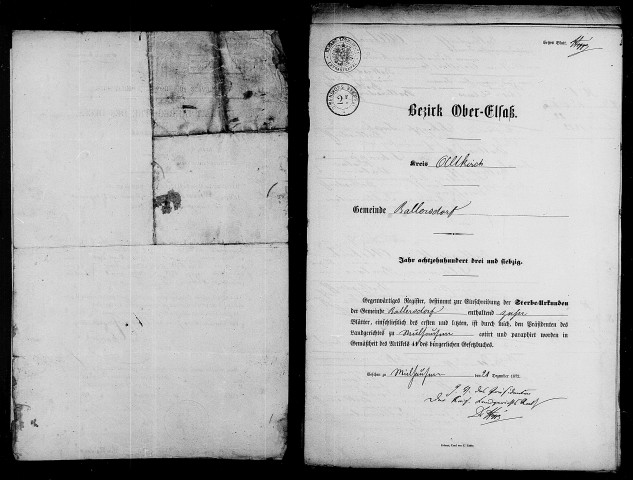 Erstes Blatt.
2 F
Bezirk Ober-Elsaß.
Kreis Altkirch
Gemeinde Ballersdorf
Jahr achtzehnhundert drei und siebzig.
Gegenwärtiges Register, bestimmt zur Einschreibung der Sterbe-Urkunden
der Gemeinde Ballersdorf enthaltend zehn
Blätter, einschließlich des ersten und letzten, ist durch uns, den Präsidenten des
Landgerichtes zu Mülhausen cotirt und paraphirt worden in
Gemäßheit des Artikels 41 des bürgerlichen Gesetzbuches.
Gesehen zu Mülhausen den 21 Dezember 1872.
des Präsidenten
Der Kais. Landgerichts Rath